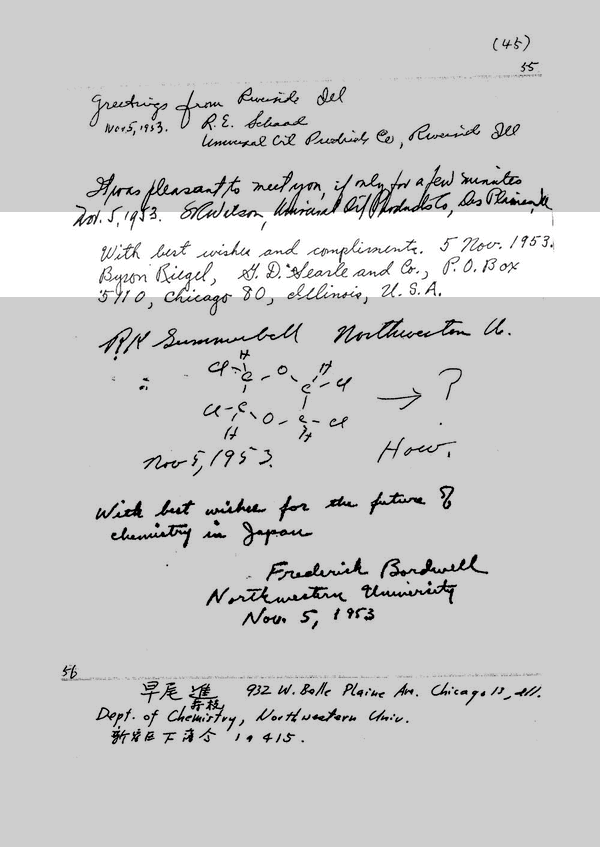 (45)
55
Greetings from Riverside Ill
Nov 5, 1953. R.E. Schaad
Universal Oil Products Co, Riverside Ill
It was pleasant to meet you, if only for a few minutes
Nov. 5, 1953. Watson, Universal Oil Products Co, Des Plaines, Ill
With best wishes and compliments. 5 Nov. 1953.
Byron Riegel, G. D. Searle and Co., P. O. Box
5110, Chicago 80, Illinois, U. S. A.
R.K Summerbell Northwestern U.
H H
Cl - C - O - C - Cl → ?
Cl - C - O - C - Cl
H H
Nov 5, 1953. How.
With best wishes for the future of
chemistry in Japan
Frederick Bordwell
Northwestern University
Nov. 5, 1953
56
早尾 進 932 W. Belle Plaine Ave. Chicago 13, Ill.
Dept. of Chemistry, Northwestern Univ.
新宿区下落合 1の415.